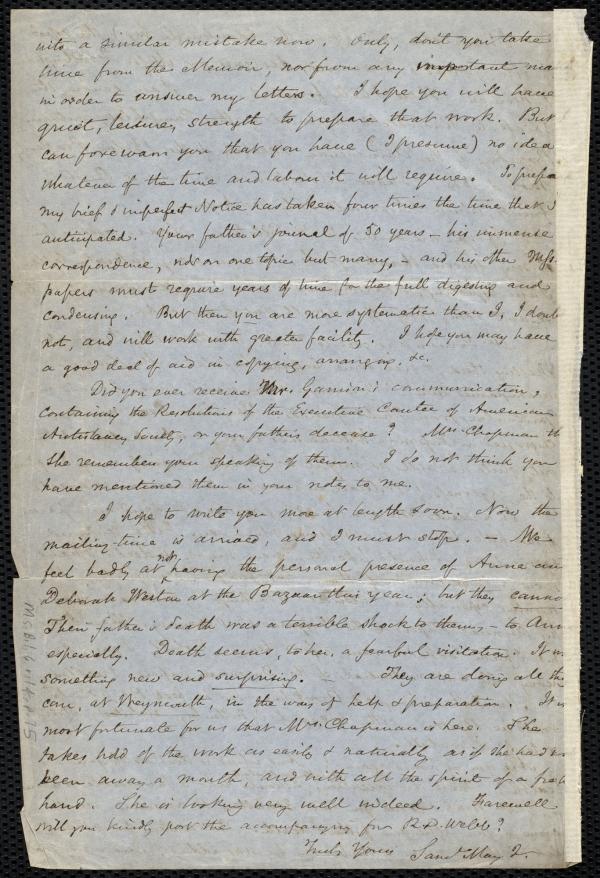 into a similar mistake now. Only, don't you take
time from the Memoir, nor from any important
in order to answer my letters. I hope you will have
quiet, leisure, strength to prepare that work. But
can forewarn you that you have (I presume) no idea
whatever of the time and labour it will require. To
my brief & imperfect Notice has taken four times the time that I
anticipated. Your father's journal of 50 years – his immense
correspondence, not on one topic but many, – and his other Mss.
papers must require years of time for the full digesting and
condensing. But then you are more systematic than I, I
not, and will work with greater facility. I hope you may have
a good deal of aid in copying, arranging, &c.
Did you ever receive Mr. Garrison's communication,
containing the Resolutions of the Executive Comtee of American
Antislavery Society, on your father's decease? Mrs. Chapman
she remembers your speaking of them. I do not think you
have mentioned them in your notes to me.
I hope to write you more at length soon. Now the
mailing-time is arrived, and I must stop. – We
feel badly at not having the personal presence of Anne
Deborah Weston at the Bazaar this year; but they
Their father's death was a terrible shock to them, – to
especially. Death seems, to her, a fearful visitation.
something new and surprising. – They are doing all they
can, at Weymouth, in the way of help & preparation. It is
most fortunate for us that Mrs. Chapman is here. She
takes hold of the work as easily & naturally as if she had
been away a month, and with all the spirit of a fresh
hand. She is looking very well indeed. Farewell
Will you kindly post the accompanying for R.D. Webb?
Truly Yours Saml. May Jr.